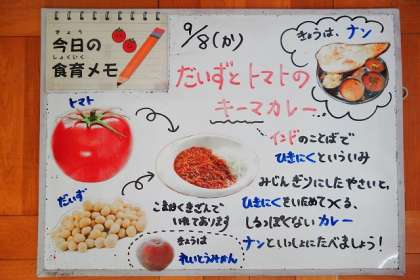 きょう
今日の
しょくいく
食育メモ
9/8(か)
きょうは、ナン
だいずとトマトの
キーマカレー
トマト
だいず
こまかくきざんで
いれてあります
きょうは
れいとうみかん
インドのことばで
ひきにくといういみ
みじんぎりにしたやさいと、
ひきにくをいためてつくる、
しるっぽくないカレー
ナンといっしょにたべましょう!